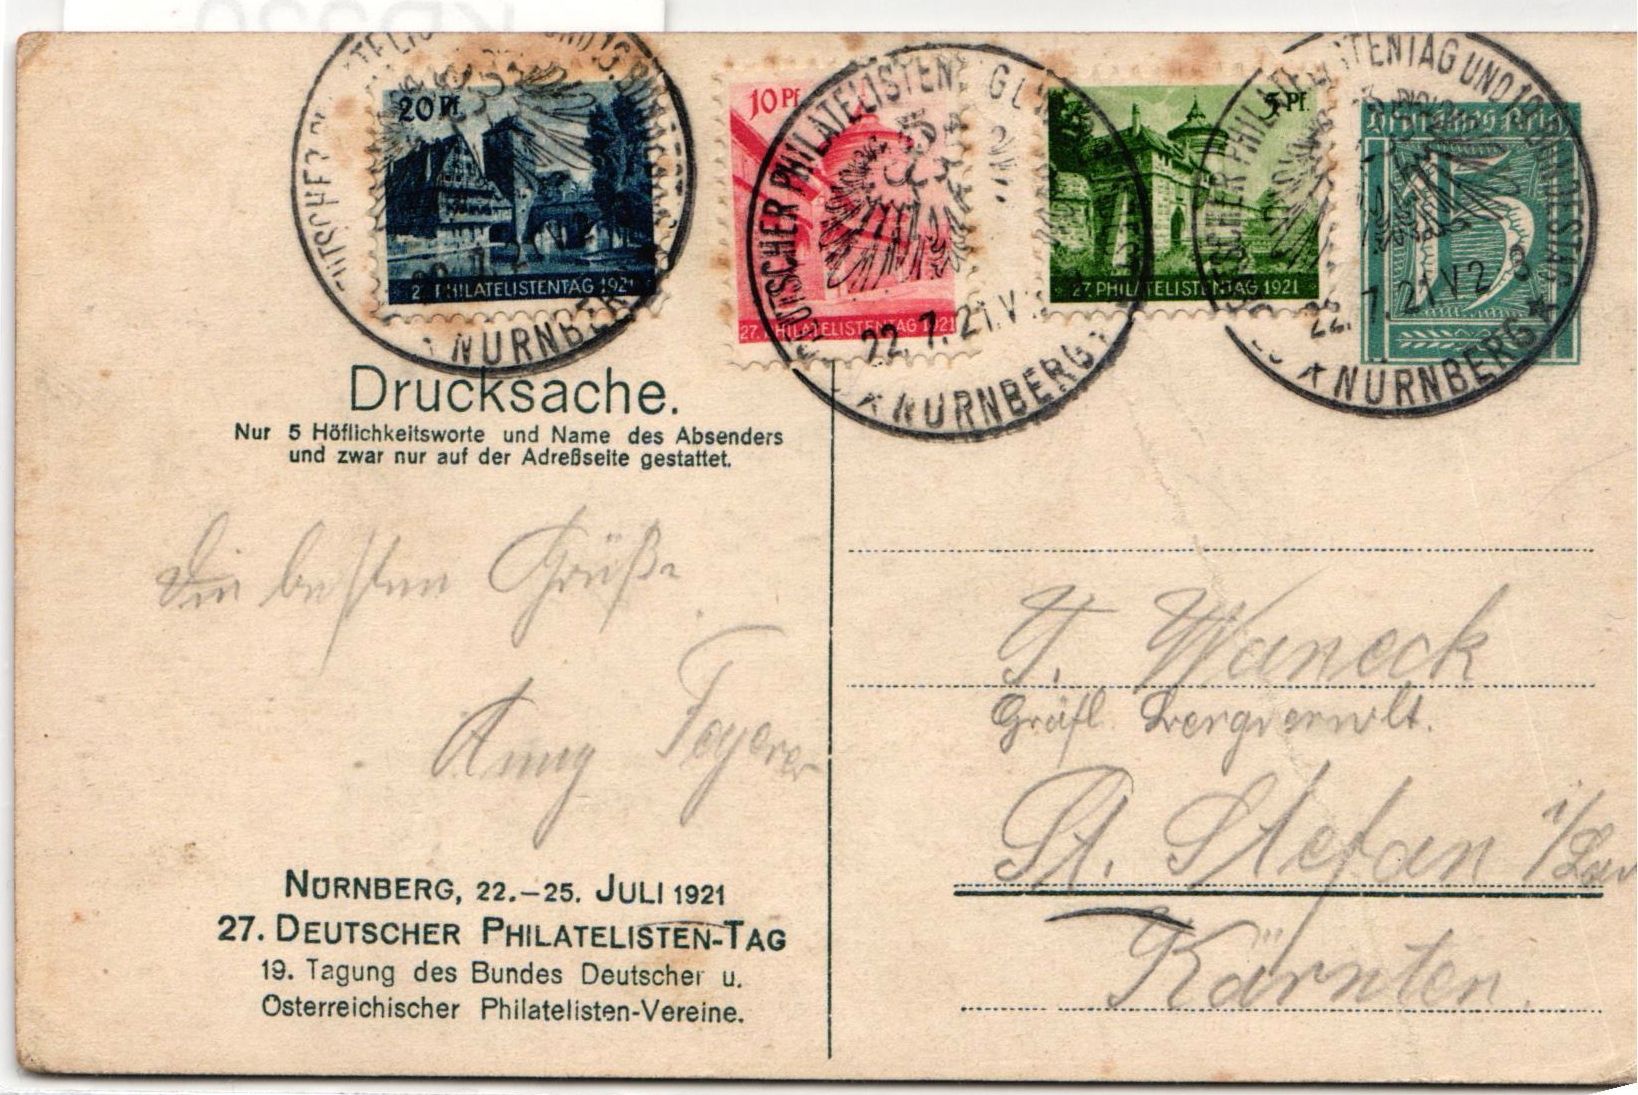 20 Pf.
27. PHILATELISTENTAG 1921
NÜRNBERG
10 Pf.
27. PHILATELISTENTAG 1921
DEUTSCHER PHILATELISTEN
22.7.21.V
NÜRNBERG
5 Pf.
27. PHILATELISTENTAG 1921
Deutsches Reich
15
DEUTSCHER PHILATELISTENTAG UND 19. BUNDESTAG
22.7.21.V2-3
NÜRNBERG
Drucksache.
Nur 5 Höflichkeitsworte und Name des Absenders
und zwar nur auf der Adreßseite gestattet.
Die besten Grüße
Anny
T. Waneck
Gräfl.
St. Stefan i/Lav
Kärnten.
NÜRNBERG, 22.–25. JULI 1921
27. DEUTSCHER PHILATELISTEN-TAG
19. Tagung des Bundes Deutscher u.
Österreichischer Philatelisten-Vereine.